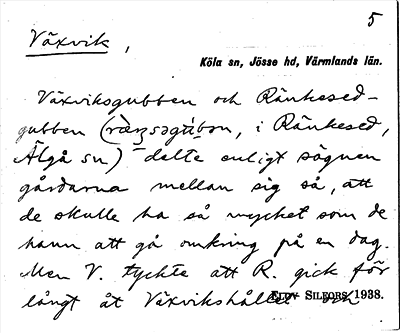 5
Växvik,
Köla sn, Jösse hd, Värmlands län.
Växviksgubben och Ränkesed-
gubben (, i Ränkesed,
Älgå sn) delte enligt sägnen
gårdarna mellan sig så, att
de skulle ha så mycket som de
hann att gå omkring på en dag.
Men V. tyckte att R. gick för
långt åt Växvikshållet och
Elov Silfors 1938.